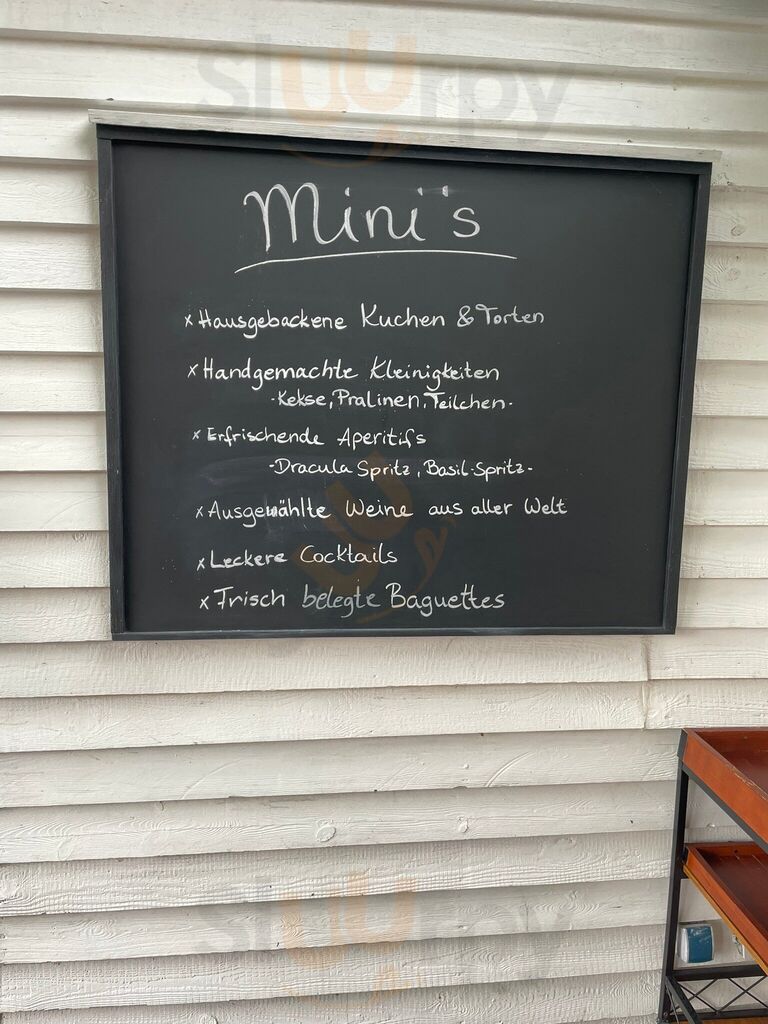 sluurpy
Mini's
x Hausgebackene Kuchen & Torten
x Handgemachte Kleinigkeiten
- Kekse, Pralinen, Teilchen -
x Erfrischende Aperitifs
- Dracula Spritz, Basil-Spritz -
x Ausgewählte Weine aus aller Welt
x Leckere Cocktails
x Frisch belegte Baguettes
sluurpy